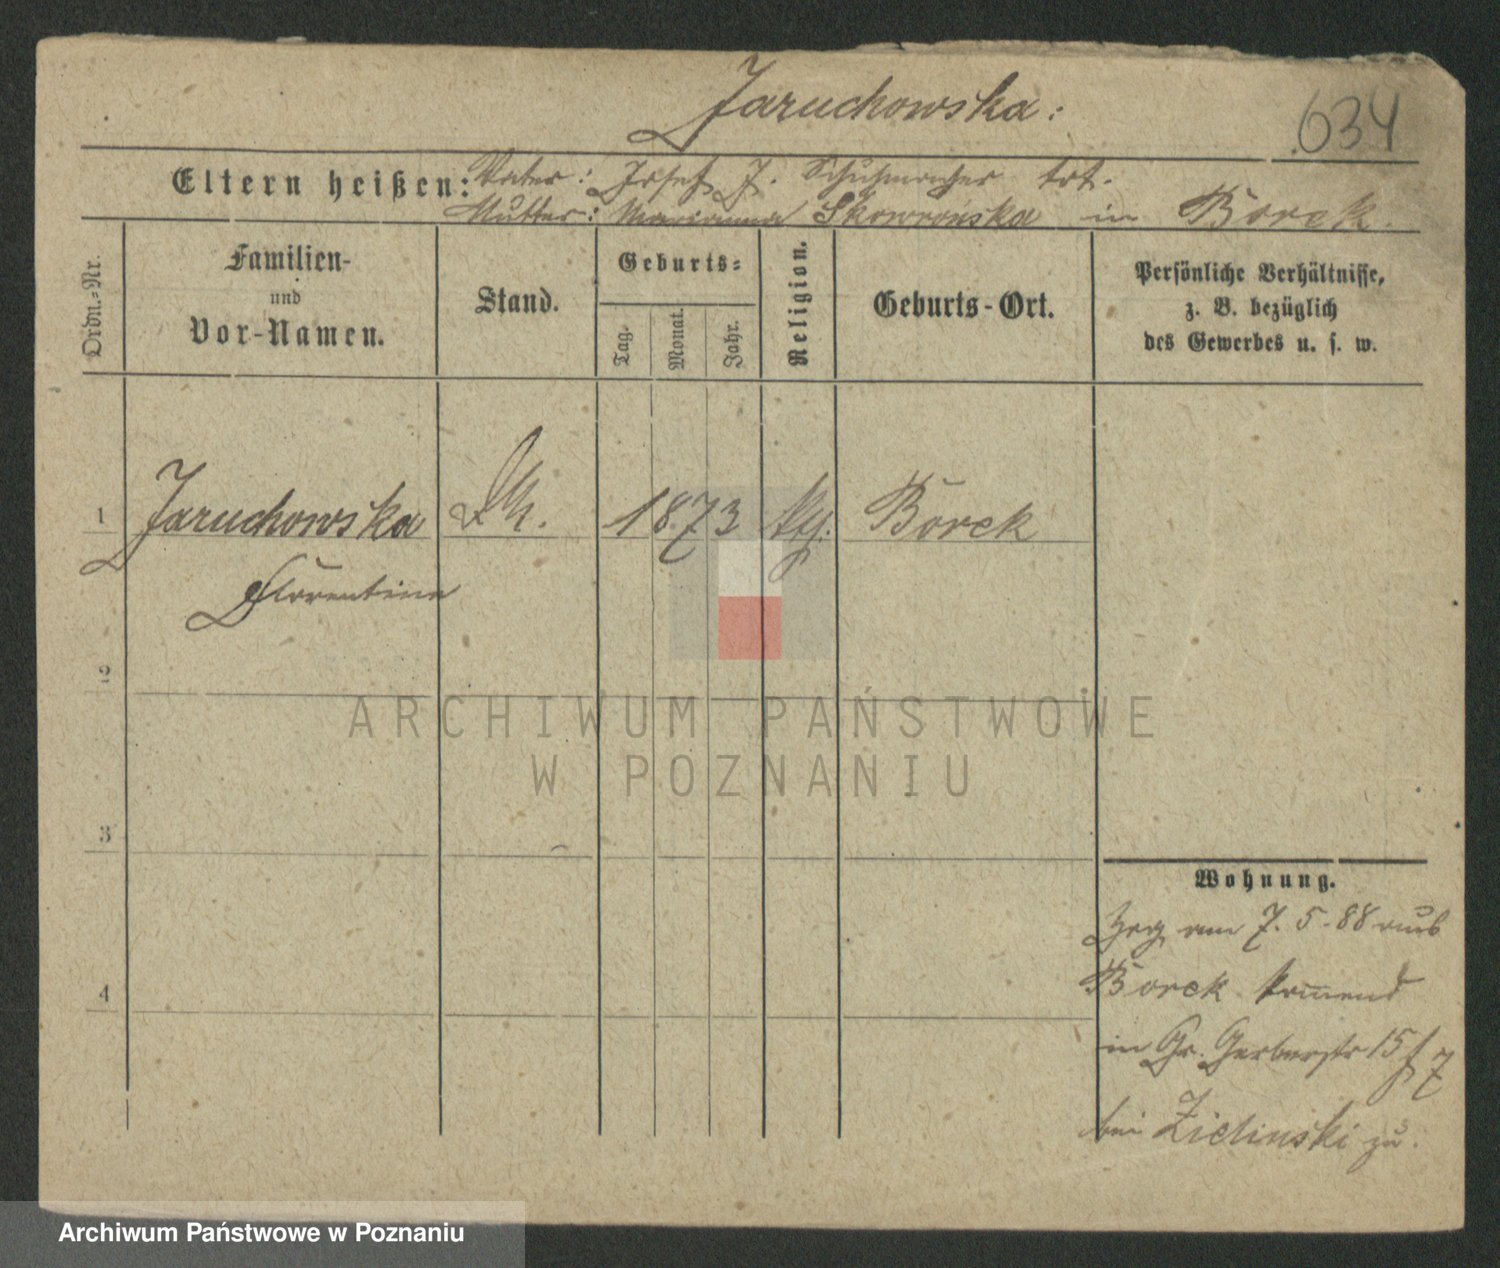 Jaruchowska:
634
Eltern heißen: Vater: Josef J. Schuhmacher tot.
Mutter: Marianna Skowrońska in Borek.
Ordn.-Nr.
Familien-
und
Vor-Namen.
Stand.
Geburts-
Tag.
Monat.
Jahr.
Religion.
Geburts-Ort.
Persönliche Verhältnisse,
z. B. bezüglich
des Gewerbes u. s. w.
1 Jaruchowska 1873 Borek
Florentine
2
3
4
Wohnung.
am 7. 5. 88 aus
Borek kommend
in Gr. Gerberstr 15
bei Zielinski zu.
ARCHIWUM PAŃSTWOWE
W POZNANIU
Archiwum Państwowe w Poznaniu